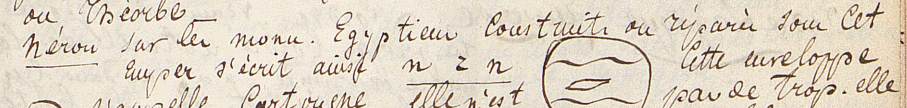 ou Théorbe
Néron sur les monu. Egyptiens Construits ou réparés sous Cet
Emper s'écrit ainsi n z n Cette enveloppe
s'appelle Cartouche elle n'est pas de trop. elle